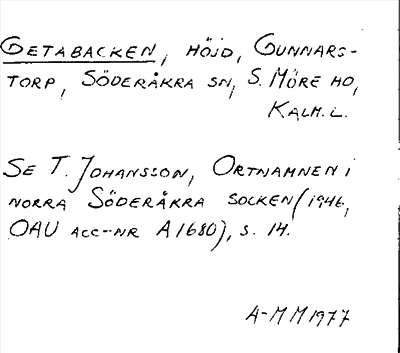 GETABACKEN, HÖJD, GUNNARS-
TORP, SÖDERÅKRA SN, S. MÖRE HD,
KALM. L.
SE T. JOHANSSON, ORTNAMNEN I
NORRA SÖDERÅKRA SOCKEN (1946,
OAU ACC-NR A1680), S. 14.
A-M M 1977